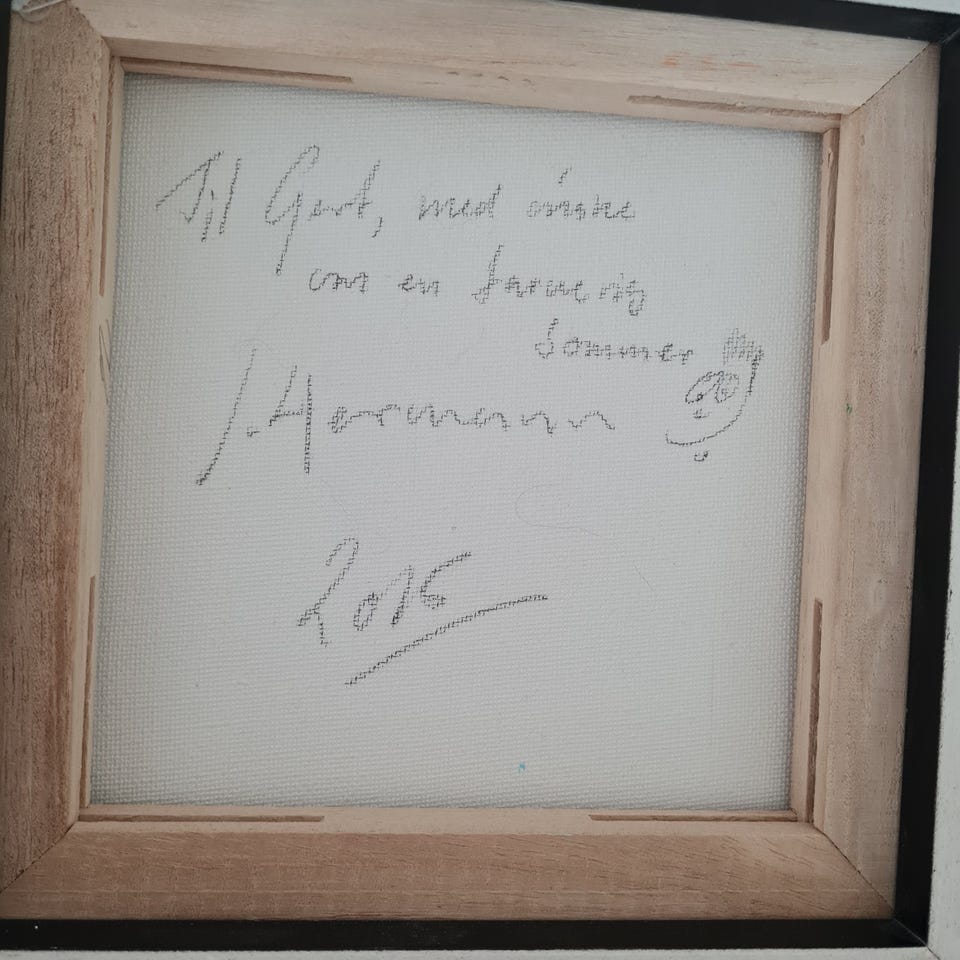 Til Gert, med ønske
om en farverig
sommer
/.Hermann